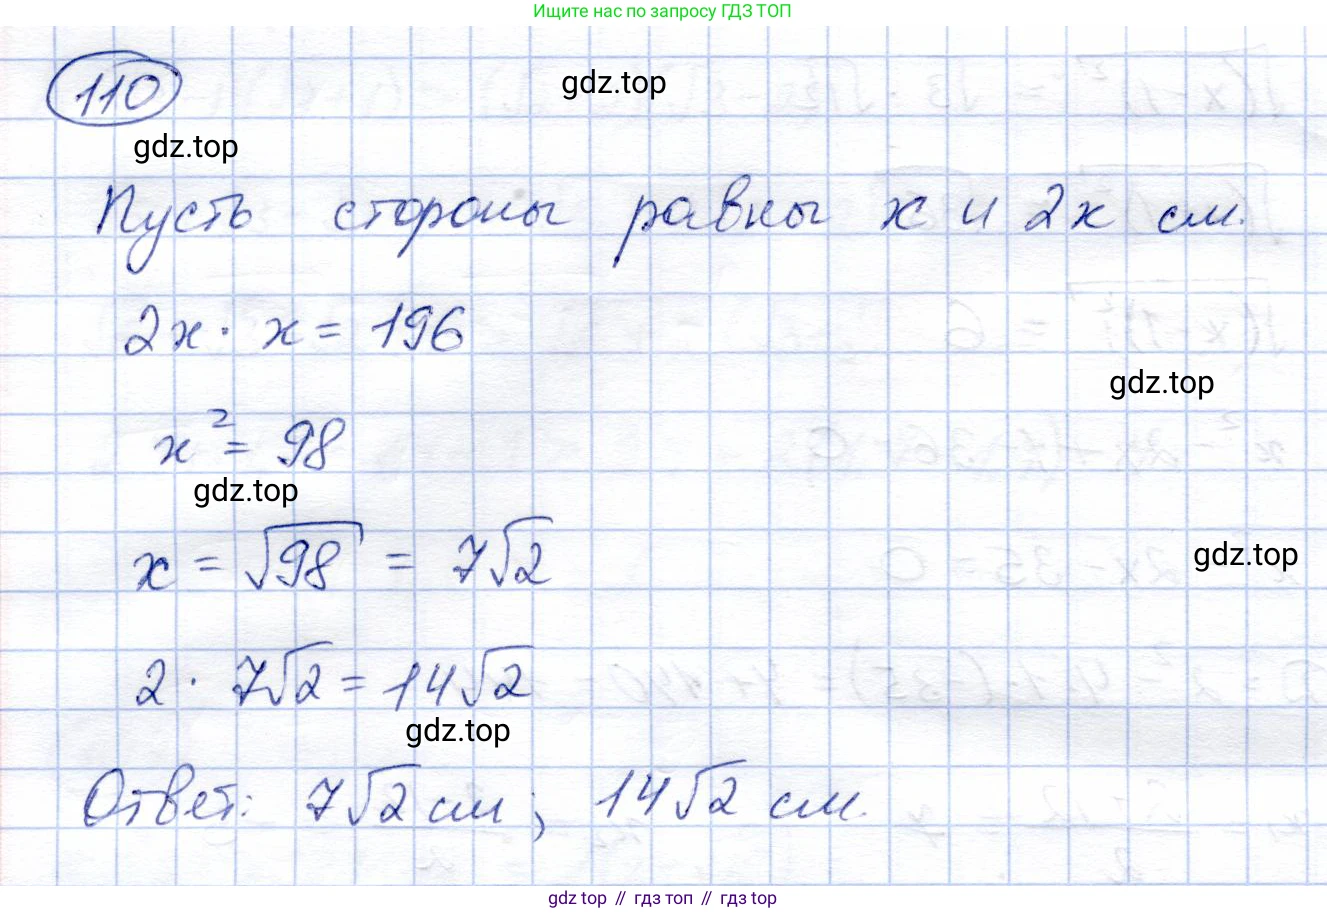 Ищите нас по запросу ГДЗ ТОП
110
gdz.top
gdz.top
Пусть стороны равны x и 2x см.
2x · x = 196
gdz.top
x² = 98
gdz.top
x = √98 = 7√2
gdz.top
2 · 7√2 = 14√2
gdz.top
Ответ: 7√2 см; 14√2 см.
gdz top // гдз топ // гдз top